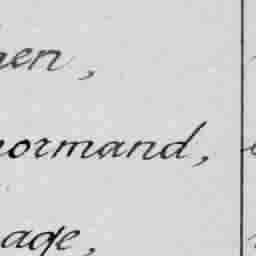 en,
normand,
age,